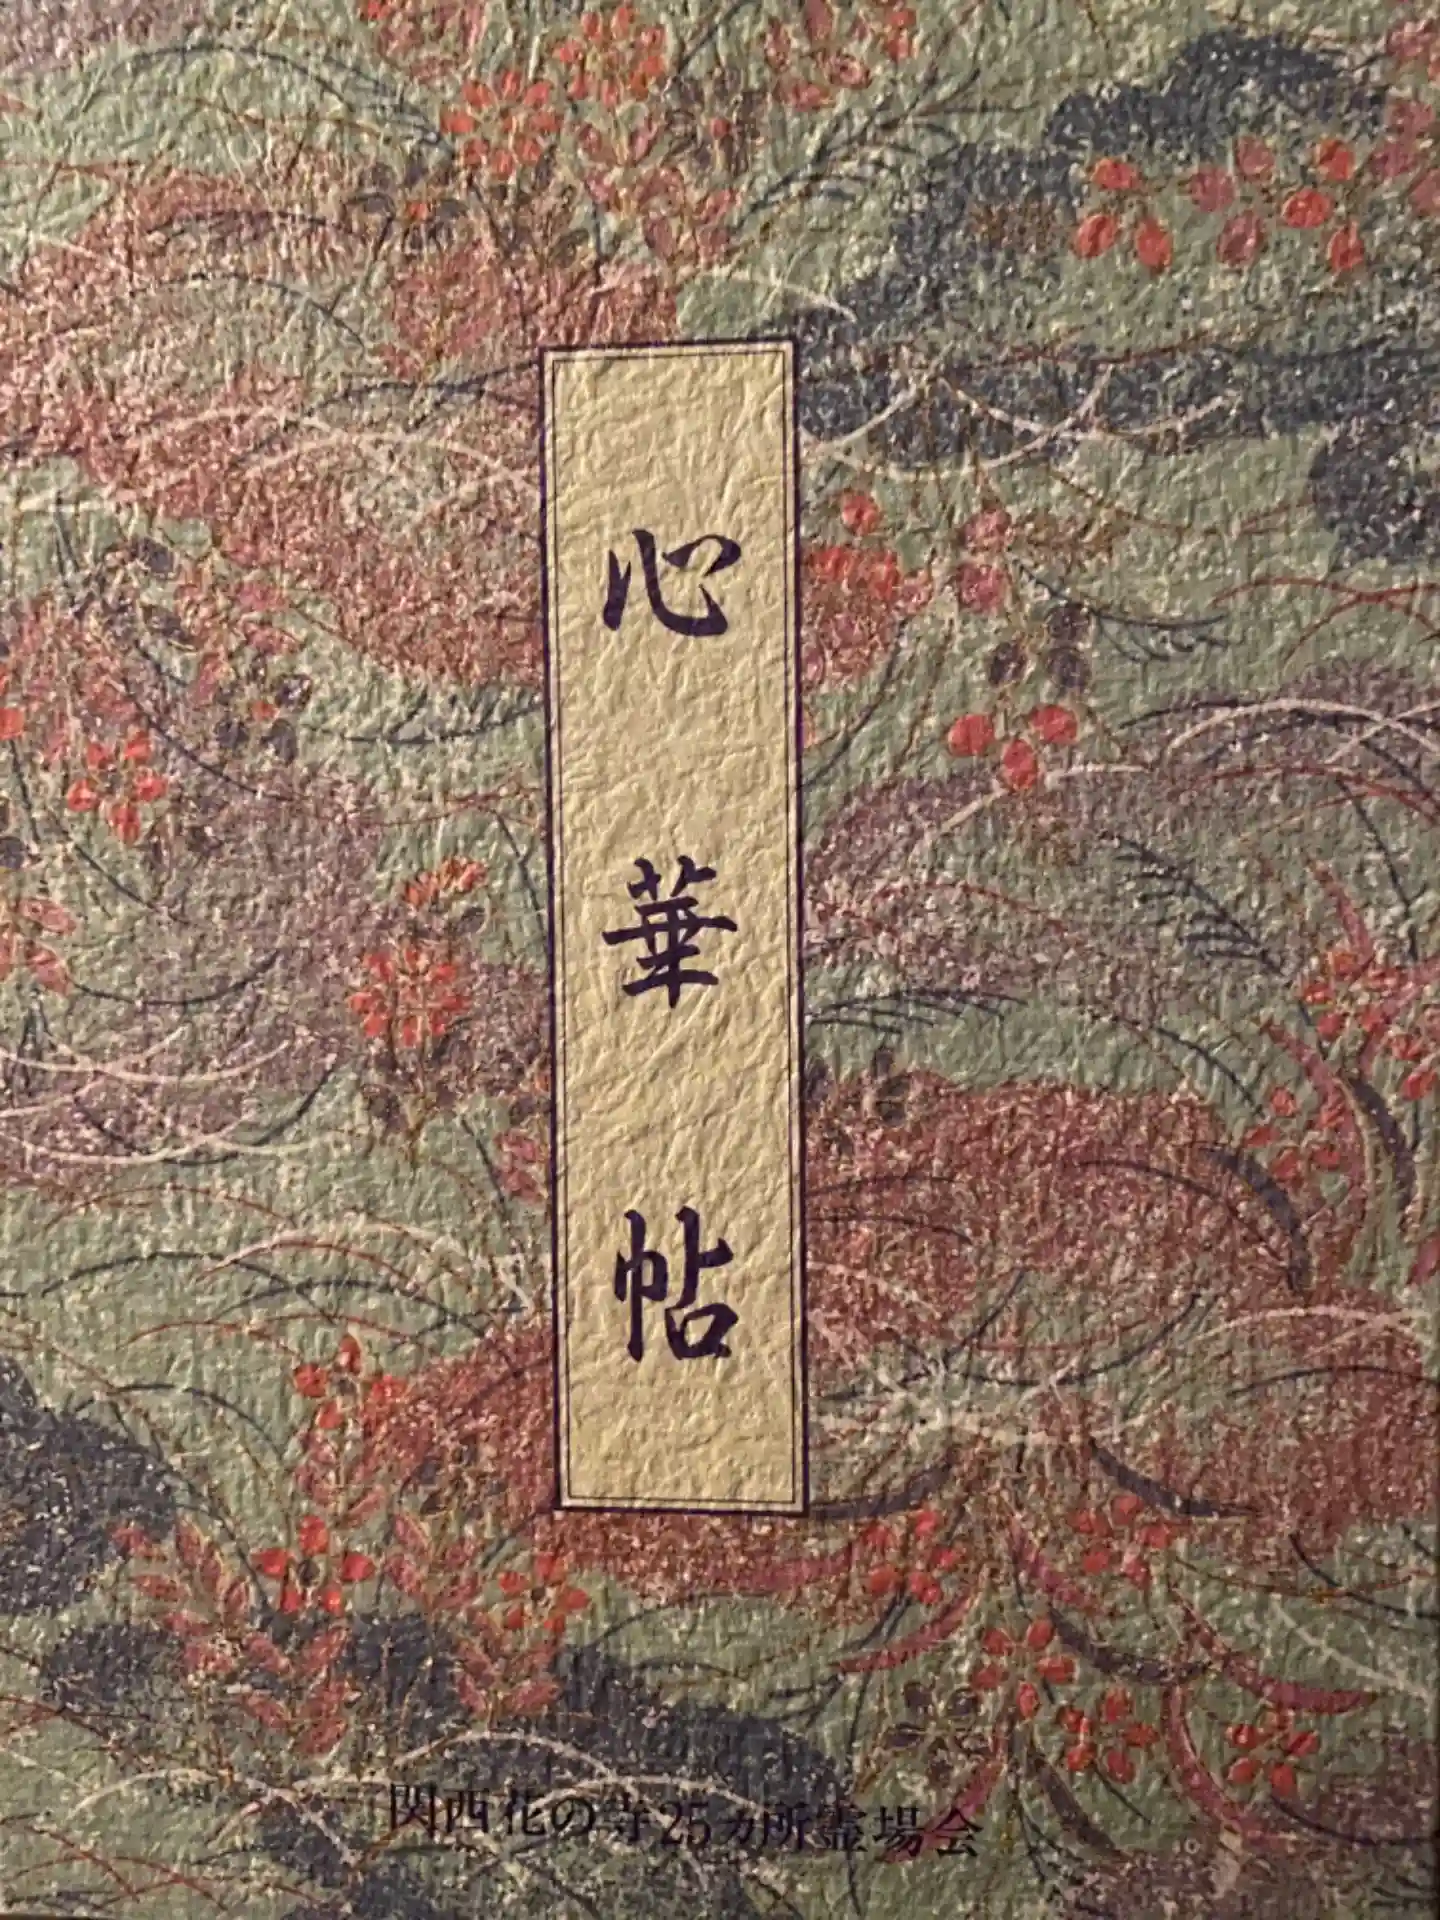 心華帖
関西花の寺25カ所霊場会